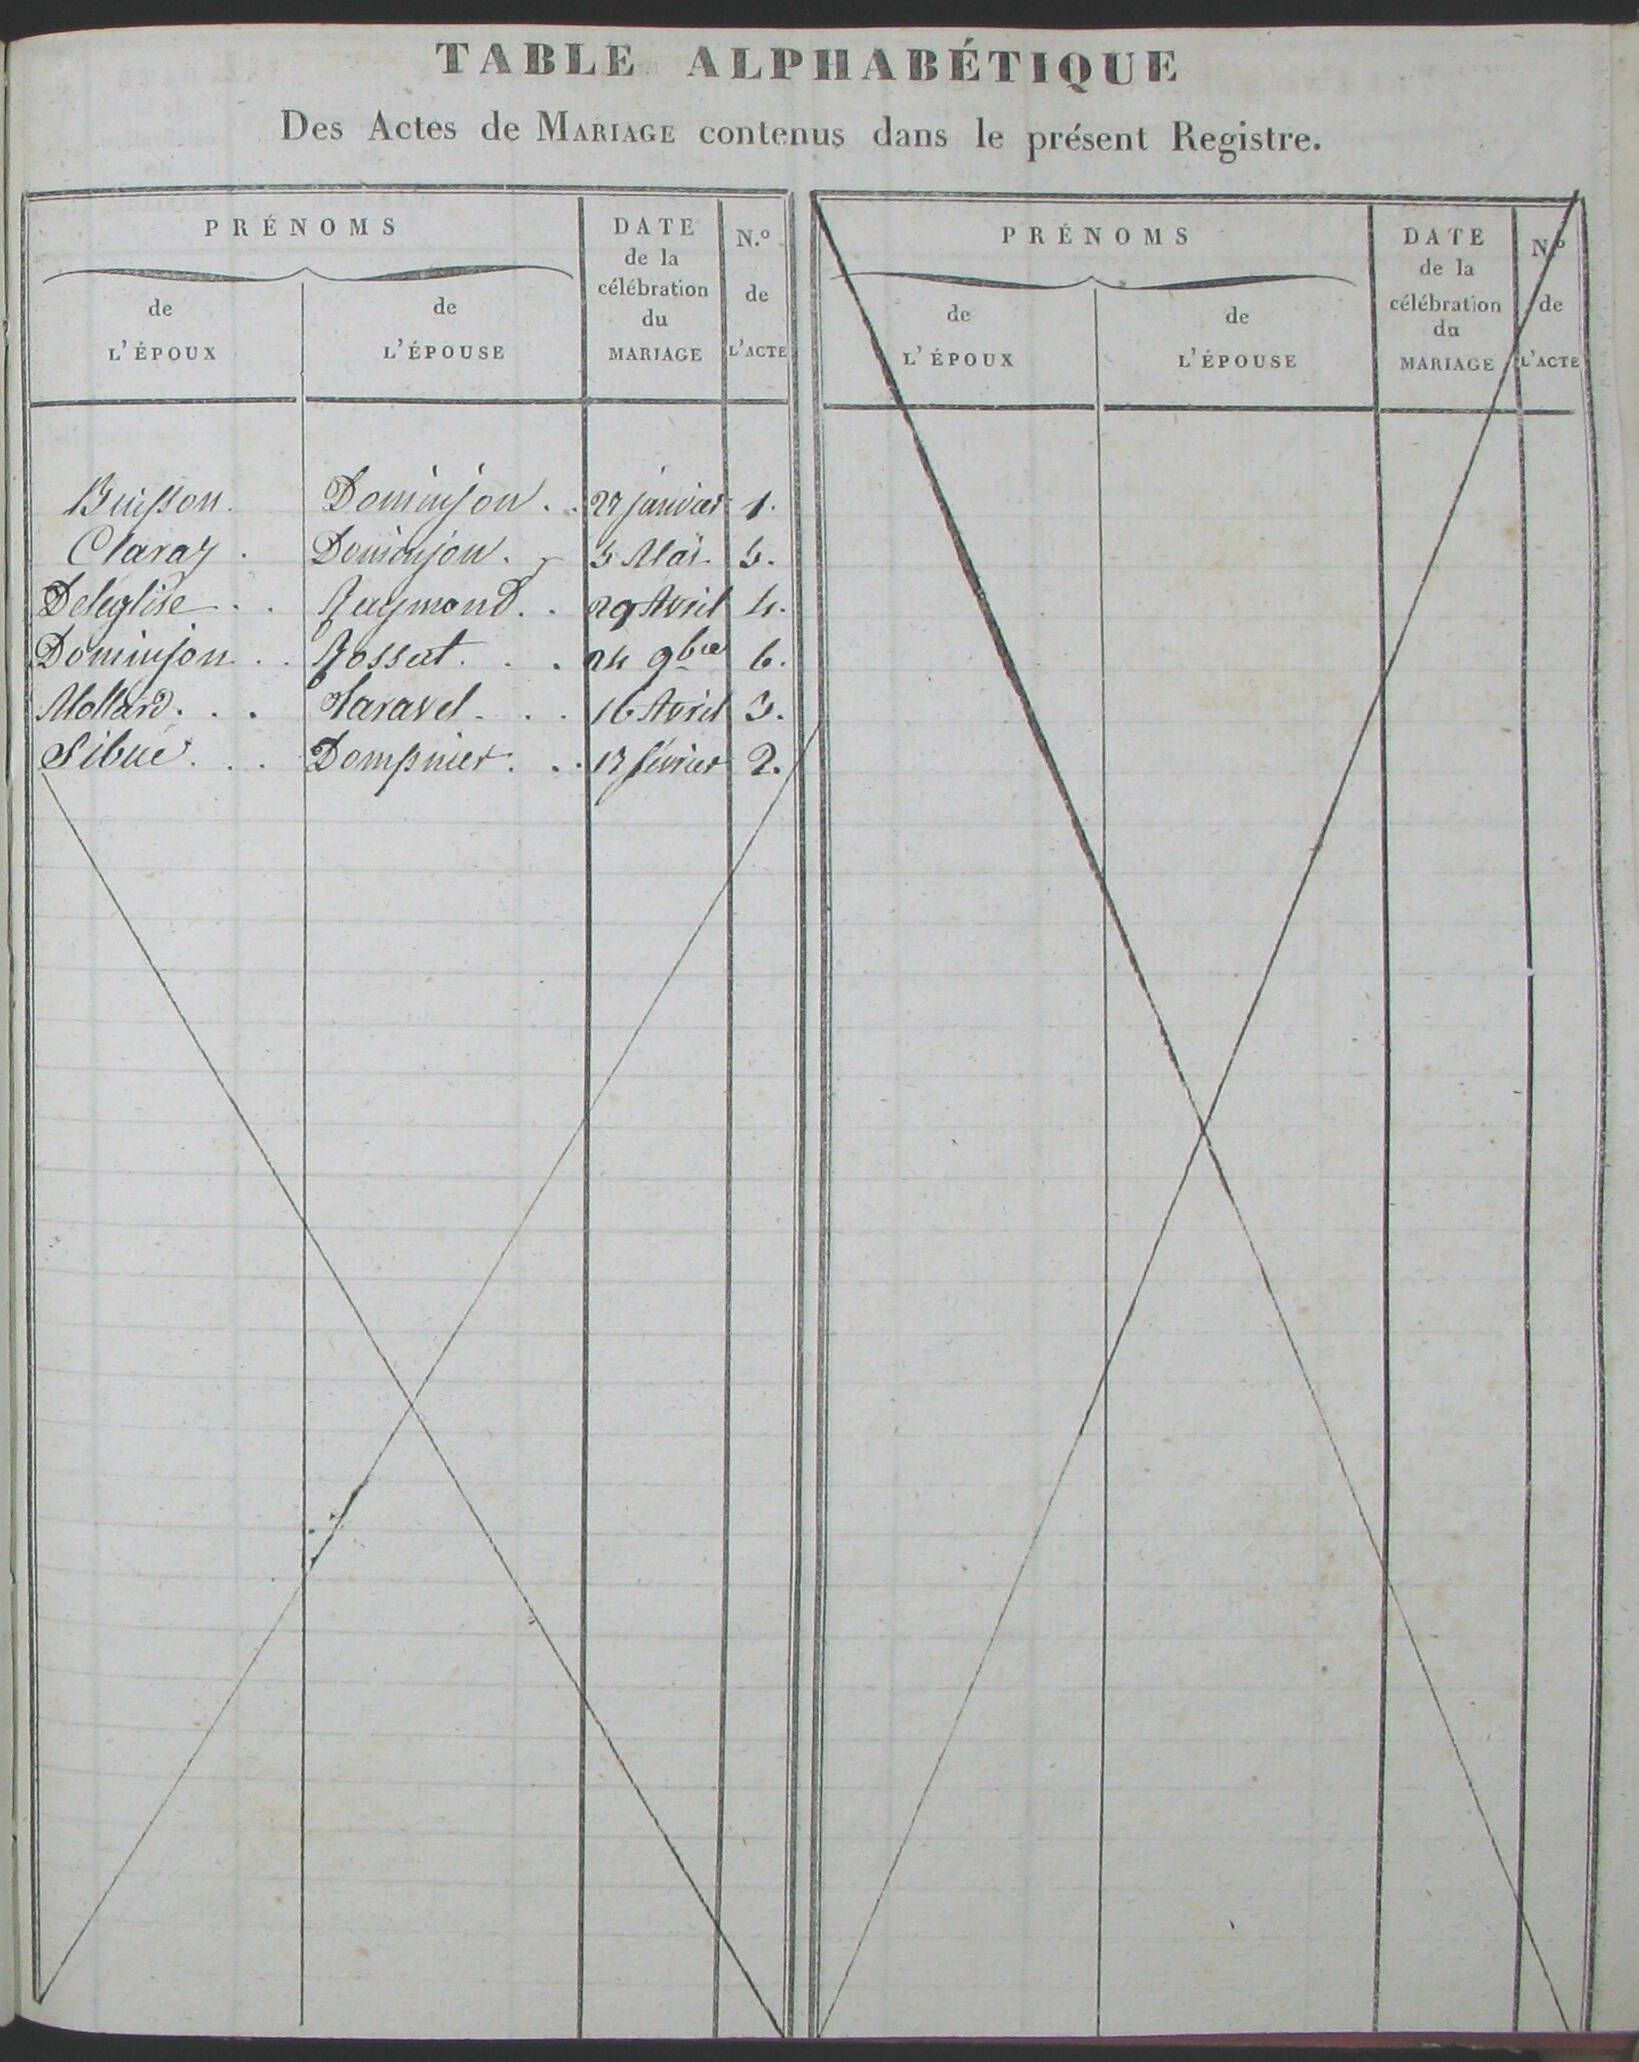 TABLE ALPHABÉTIQUE
Des Actes de MARIAGE contenus dans le présent Registre.
PRÉNOMS
de L'ÉPOUX
de L'ÉPOUSE
DATE de la célébration du MARIAGE
N.º de L'ACTE
Buisson. Dominjon . . 27 janvier 1.
Claraz . Dominjon . 5 Mai. 5.
Deléglise . . Raymond . . 29 Avril 4.
Dominjon . . Rossat . . . 24 9bre 6.
Mollard . . . Taravel . . . 16 Avril 3.
Sibué . . . Dompnier . . . février 2.
PRÉNOMS
de L'ÉPOUX
de L'ÉPOUSE
DATE de la célébration du MARIAGE
N.º de L'ACTE